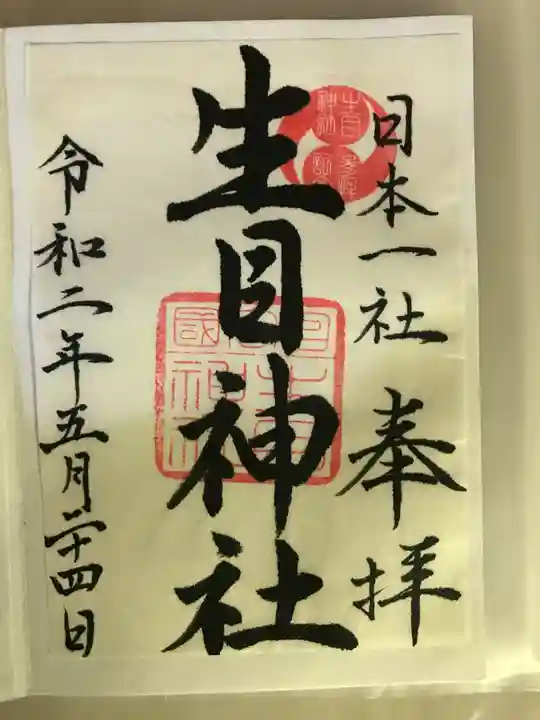 日本一社 奉拝
生目神社
令和二年五月二十四日